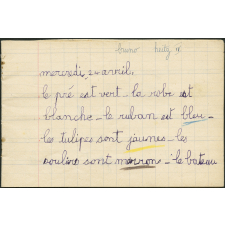 bruno
mercredi, 2 avril.
le pré est vert _ la robe est
blanche _ le ruban est bleu _
les tulipes sont jaunes _ les
souliers sont marrons _ le bateau